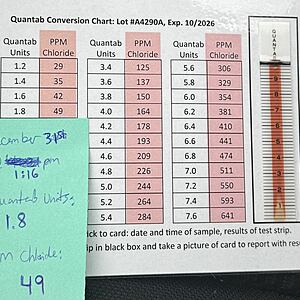 Quantab Conversion Chart: Lot #A4290A, Exp. 10/2026
Quantab Units PPM Chloride Quantab Units PPM Chloride Quantab Units PPM Chloride
1.2 29 3.4 125 5.6 306
1.4 35 3.6 137 5.8 329
1.6 42 3.8 150 6.0 354
1.8 49 4.0 164 6.2 381
4.2 178 6.4 410
4.4 193 6.6 441
4.6 209 6.8 474
4.8 226 7.0 511
5.0 244 7.2 550
5.2 264 7.4 593
5.4 284 7.6 641
cember 31st
pm
1:16
uantab Units:
1.8
m Chloride:
49
ick to card: date and time of sample, results of test strip.
ip in black box and take a picture of card to report with res
QUANTAB
9
8
7
6
5
4
3
2
1